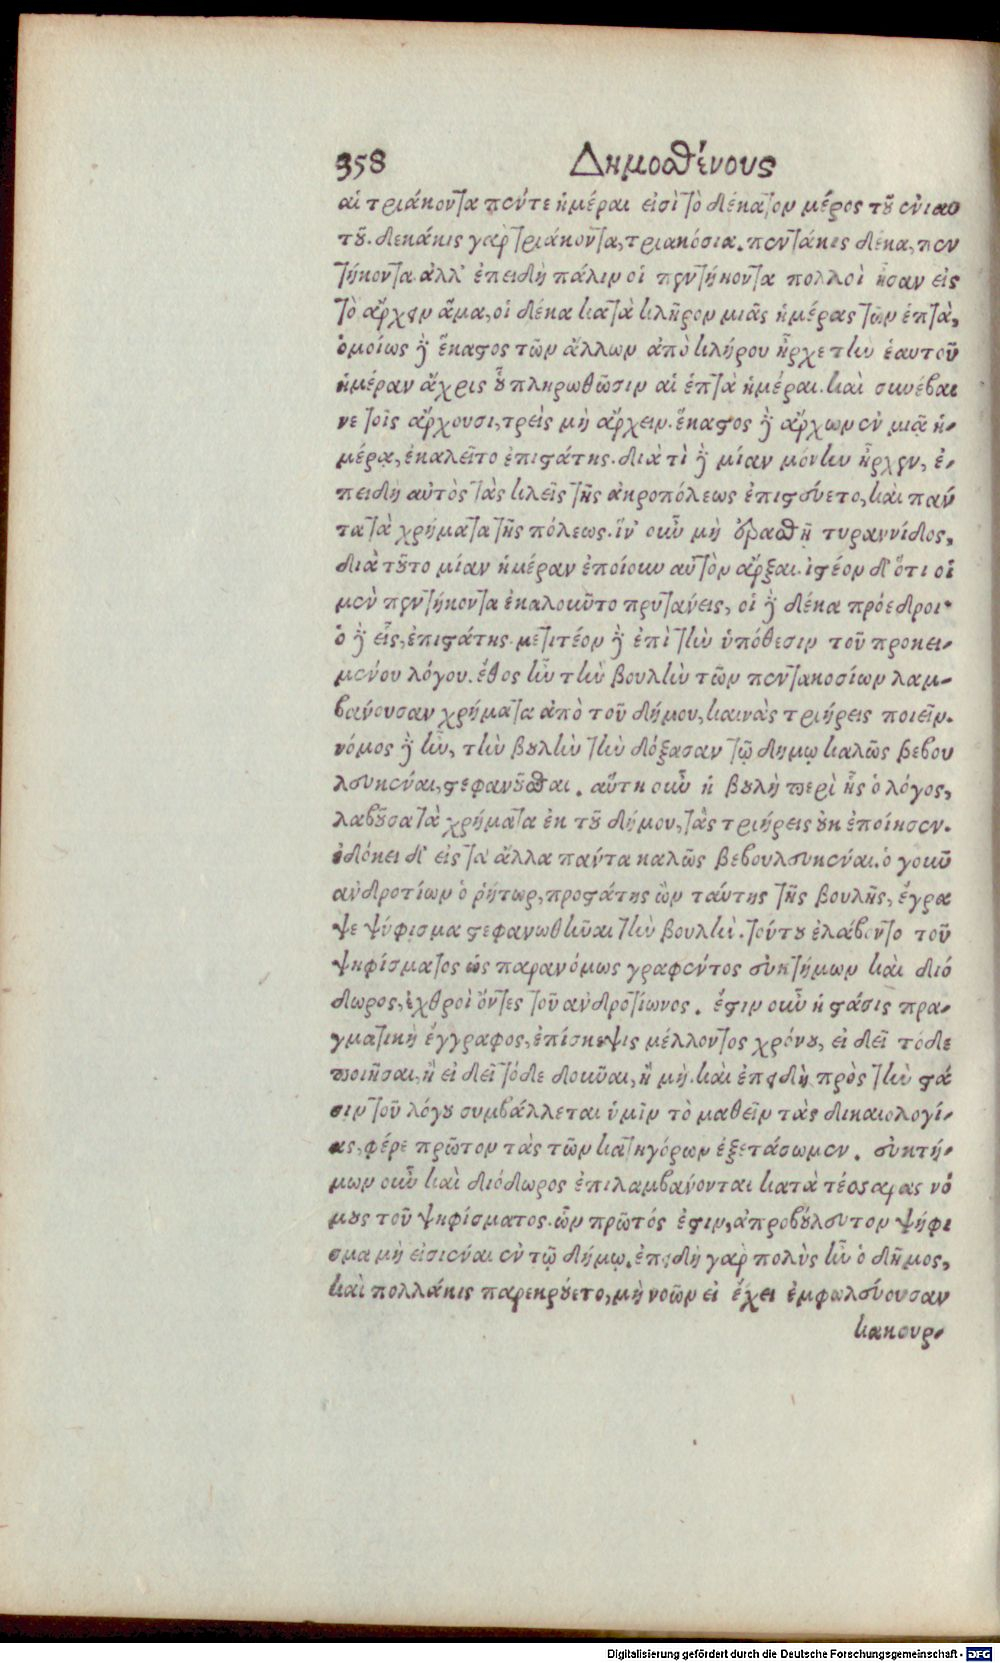 358 Δημοσθένους
αἱ τριάκοντα πέντε ἡμέραι εἰσὶ τὸ δέκατον μέρος τοῦ ἐνιαυ
τοῦ. δεκάκις γὰρ τριάκοντα, τριακόσια. πεντάκις δέκα, πεν
τήκοντα. ἀλλ' ἐπειδὴ πάλιν οἱ πεντήκοντα πολλοὶ ἦσαν εἰς
τὸ ἄρχειν ἅμα, οἱ δέκα κατὰ κλῆρον μιᾶς ἡμέρας τῶν ἑπτὰ,
ὁμοίως δὲ ἕκαστος τῶν ἄλλων ἀπὸ κλήρου ἦρχε τὴν ἑαυτοῦ
ἡμέραν ἄχρις οὗ πληρωθῶσιν αἱ ἑπτὰ ἡμέραι. καὶ συνέβαι
νε τοῖς ἄρχουσι, τρεῖς μὴ ἄρχειν. ἕκαστος δὲ ἄρχων ἐν μιᾷ ἡ-
μέρᾳ, ἐκαλεῖτο ἐπιστάτης. διὰ τὶ δὲ μίαν μόνην ἦρχεν, ἐ-
πειδὴ αὐτὸς τὰς κλεῖς τῆς ἀκροπόλεως ἐπιστεύετο, καὶ πάν
τα τὰ χρήματα τῆς πόλεως. ἵν' οὖν μὴ ἐρασθῇ τυραννίδος,
διὰ τοῦτο μίαν ἡμέραν ἐποίουν αὐτὸν ἄρξαι. ἰστέον δ' ὅτι οἱ
μὲν πεντήκοντα ἐκαλοῦντο πρυτάνεις, οἱ δὲ δέκα πρόεδροι·
ὁ δὲ εἷς, ἐπιστάτης. μετιτέον δὲ ἐπὶ τὴν ὑπόθεσιν τοῦ προκει-
μένου λόγου. ἔθος ἦν τὴν βουλὴν τῶν πεντακοσίων λαμ-
βάνουσαν χρήματα ἀπὸ τοῦ δήμου, καινὰς τριήρεις ποιεῖν.
νόμος δὲ ἦν, τὴν βουλὴν τὴν δόξασαν τῷ δημῳ καλῶς βεβου
λευκέναι, στεφανοῦσθαι. αὕτη οὖν ἡ βουλὴ περὶ ἧς ὁ λόγος,
λαβοῦσα τὰ χρήματα ἐκ τοῦ δήμου, τὰς τριήρεις οὐκ ἐποίησεν.
ἐδόκει δ' εἰς τὰ ἄλλα πάντα καλῶς βεβουλευκέναι. ὁ γοῦν
ἀνδροτίων ὁ ῥήτωρ, προστάτης ὢν ταύτης τῆς βουλῆς, ἔγρα
ψε ψήφισμα στεφανωθῆναι τὴν βουλήν. τούτου ἐλάβοντο τοῦ
ψηφίσματος ὡς παρανόμως γραφέντος εὐκτήμων καὶ διό
δωρος, ἐχθροὶ ὄντες τοῦ ἀνδροτίωνος. ἔστιν οὖν ἡ στάσις πρα-
γματικὴ ἔγγραφος, ἐπίσκεψις μέλλοντος χρόνου, εἰ δεῖ τόδε
ποιῆσαι, ἢ εἰ δεῖ τόδε δοῦναι, ἢ μή. καὶ ἐπειδὴ πρὸς τὴν στά
σιν τοῦ λόγου συμβάλλεται ὑμῖν τὸ μαθεῖν τὰς δικαιολογί-
ας, φέρε πρῶτον τὰς τῶν κατηγόρων ἐξετάσωμεν. εὐκτή-
μων οὖν καὶ διόδωρος ἐπιλαμβάνονται κατὰ τέσσαρας νό
μους τοῦ ψηφίσματος. ὧν πρῶτός ἐστιν, ἀπροβούλευτον ψήφι
σμα μὴ εἰσιέναι ἐν τῷ δήμῳ. ἐπειδὴ γὰρ πολὺς ἦν ὁ δῆμος,
καὶ πολλάκις παρεκρούετο, μὴ νοῶν εἰ ἔχει ἐμφωλεύουσαν
κακουρ-
Digitalisierung gefördert durch die Deutsche Forschungsgemeinschaft - DFG